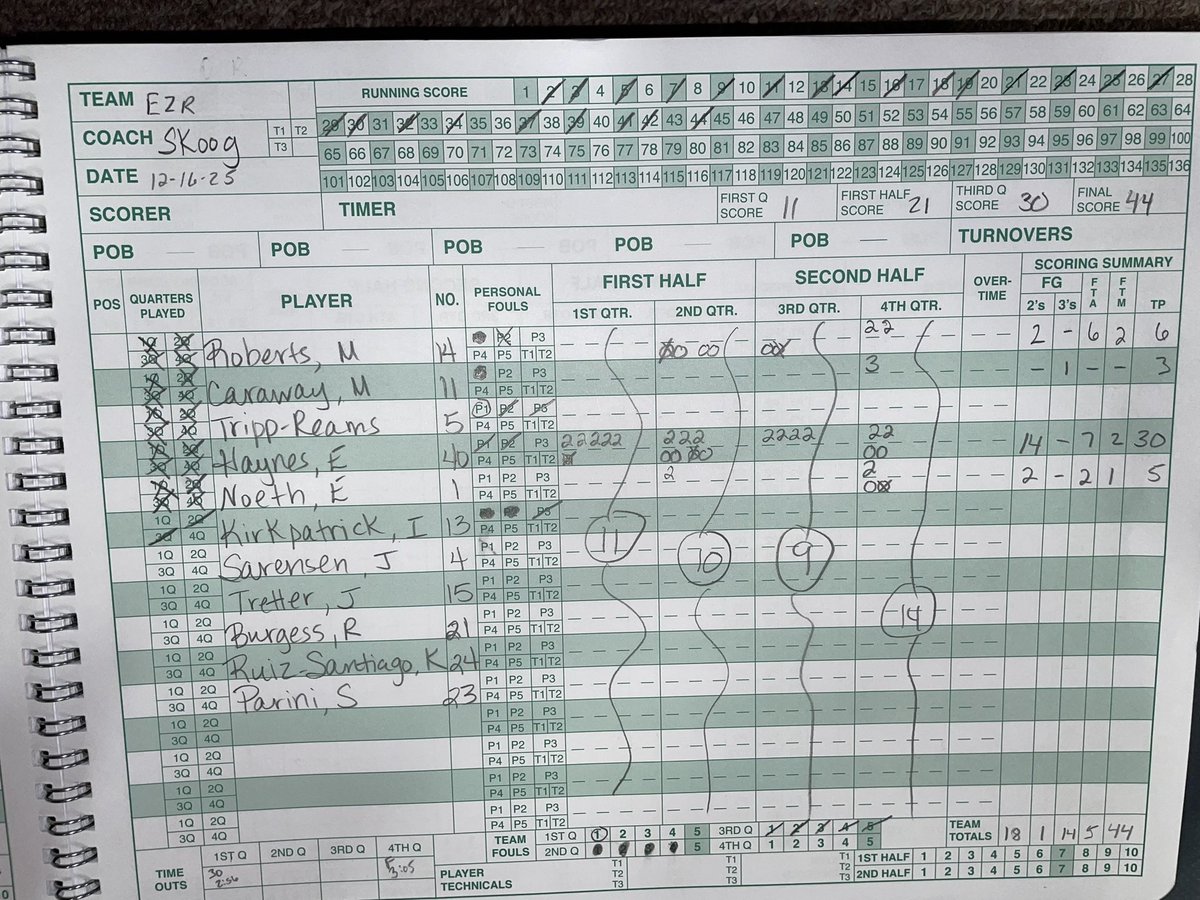 TEAM EZR
RUNNING SCORE 1 2 3 4 5 6 7 8 9 10 11 12 13 14 15 16 17 18 19 20 21 22 23 24 25 26 27 28
29 30 31 32 33 34 35 36 37 38 39 40 41 42 43 44 45 46 47 48 49 50 51 52 53 54 55 56 57 58 59 60 61 62 63 64
COACH Skoog T1 T2 T3
65 66 67 68 69 70 71 72 73 74 75 76 77 78 79 80 81 82 83 84 85 86 87 88 89 90 91 92 93 94 95 96 97 98 99 100
DATE 12-16-25
101 102 103 104 105 106 107 108 109 110 111 112 113 114 115 116 117 118 119 120 121 122 123 124 125 126 127 128 129 130 131 132 133 134 135 136
SCORER TIMER FIRST Q SCORE 11 FIRST HALF SCORE 21 THIRD Q SCORE 30 FINAL SCORE 44
POB POB POB POB POB TURNOVERS
POS QUARTERS PLAYED PLAYER NO. PERSONAL FOULS FIRST HALF SECOND HALF OVER-TIME SCORING SUMMARY
1ST QTR. 2ND QTR. 3RD QTR. 4TH QTR. FG 2's 3's FTA FTM TP
1Q 2Q 3Q 4Q Roberts, M 14 P3 P4 P5 T1 T2 00 00 00 22 2 - 6 2 6
1Q 2Q 3Q 4Q Caraway, M 11 P2 P3 P4 P5 T1 T2 3 - 1 - - 3
1Q 2Q 3Q 4Q Tripp-Reams 5 P1 P2 P3 P4 P5 T1 T2
1Q 2Q 3Q 4Q Haynes, E 40 P1 P2 P3 P4 P5 T1 T2 22222 222 0000 2222 22 00 14 - 7 2 30
1Q 2Q 3Q 4Q Noeth, E 1 P1 P2 P3 P4 P5 T1 T2 2 2 00 2 - 2 1 5
1Q 2Q 3Q 4Q Kirkpatrick, I 13 P3 P4 P5 T1 T2
1Q 2Q 3Q 4Q Sarensen, J 4 P1 P2 P3 P4 P5 T1 T2 11 10 9
1Q 2Q 3Q 4Q Tretter, J 15 P1 P2 P3 P4 P5 T1 T2
1Q 2Q 3Q 4Q Burgess, R 21 P1 P2 P3 P4 P5 T1 T2 14
1Q 2Q 3Q 4Q Ruiz-Santiago, K 24 P1 P2 P3 P4 P5 T1 T2
1Q 2Q 3Q 4Q Parini, S 23 P1 P2 P3 P4 P5 T1 T2
1Q 2Q 3Q 4Q P1 P2 P3 P4 P5 T1 T2
1Q 2Q 3Q 4Q P1 P2 P3 P4 P5 T1 T2
1Q 2Q 3Q 4Q P1 P2 P3 P4 P5 T1 T2
1Q 2Q 3Q 4Q P1 P2 P3 P4 P5 T1 T2
TEAM FOULS 1ST Q 1 2 3 4 5 3RD Q 1 2 3 4 5 TEAM TOTALS 18 1 14 5 44
2ND Q 5 4TH Q 1 2 3 4 5
TIME OUTS 1ST Q 2ND Q 3RD Q 4TH Q
30 2:56 F 3:05
PLAYER TECHNICALS T1 T2 T3 T1 T2 T3 T1 T2 T3
1ST HALF 1 2 3 4 5 6 7 8 9 10
2ND HALF 1 2 3 4 5 6 7 8 9 10